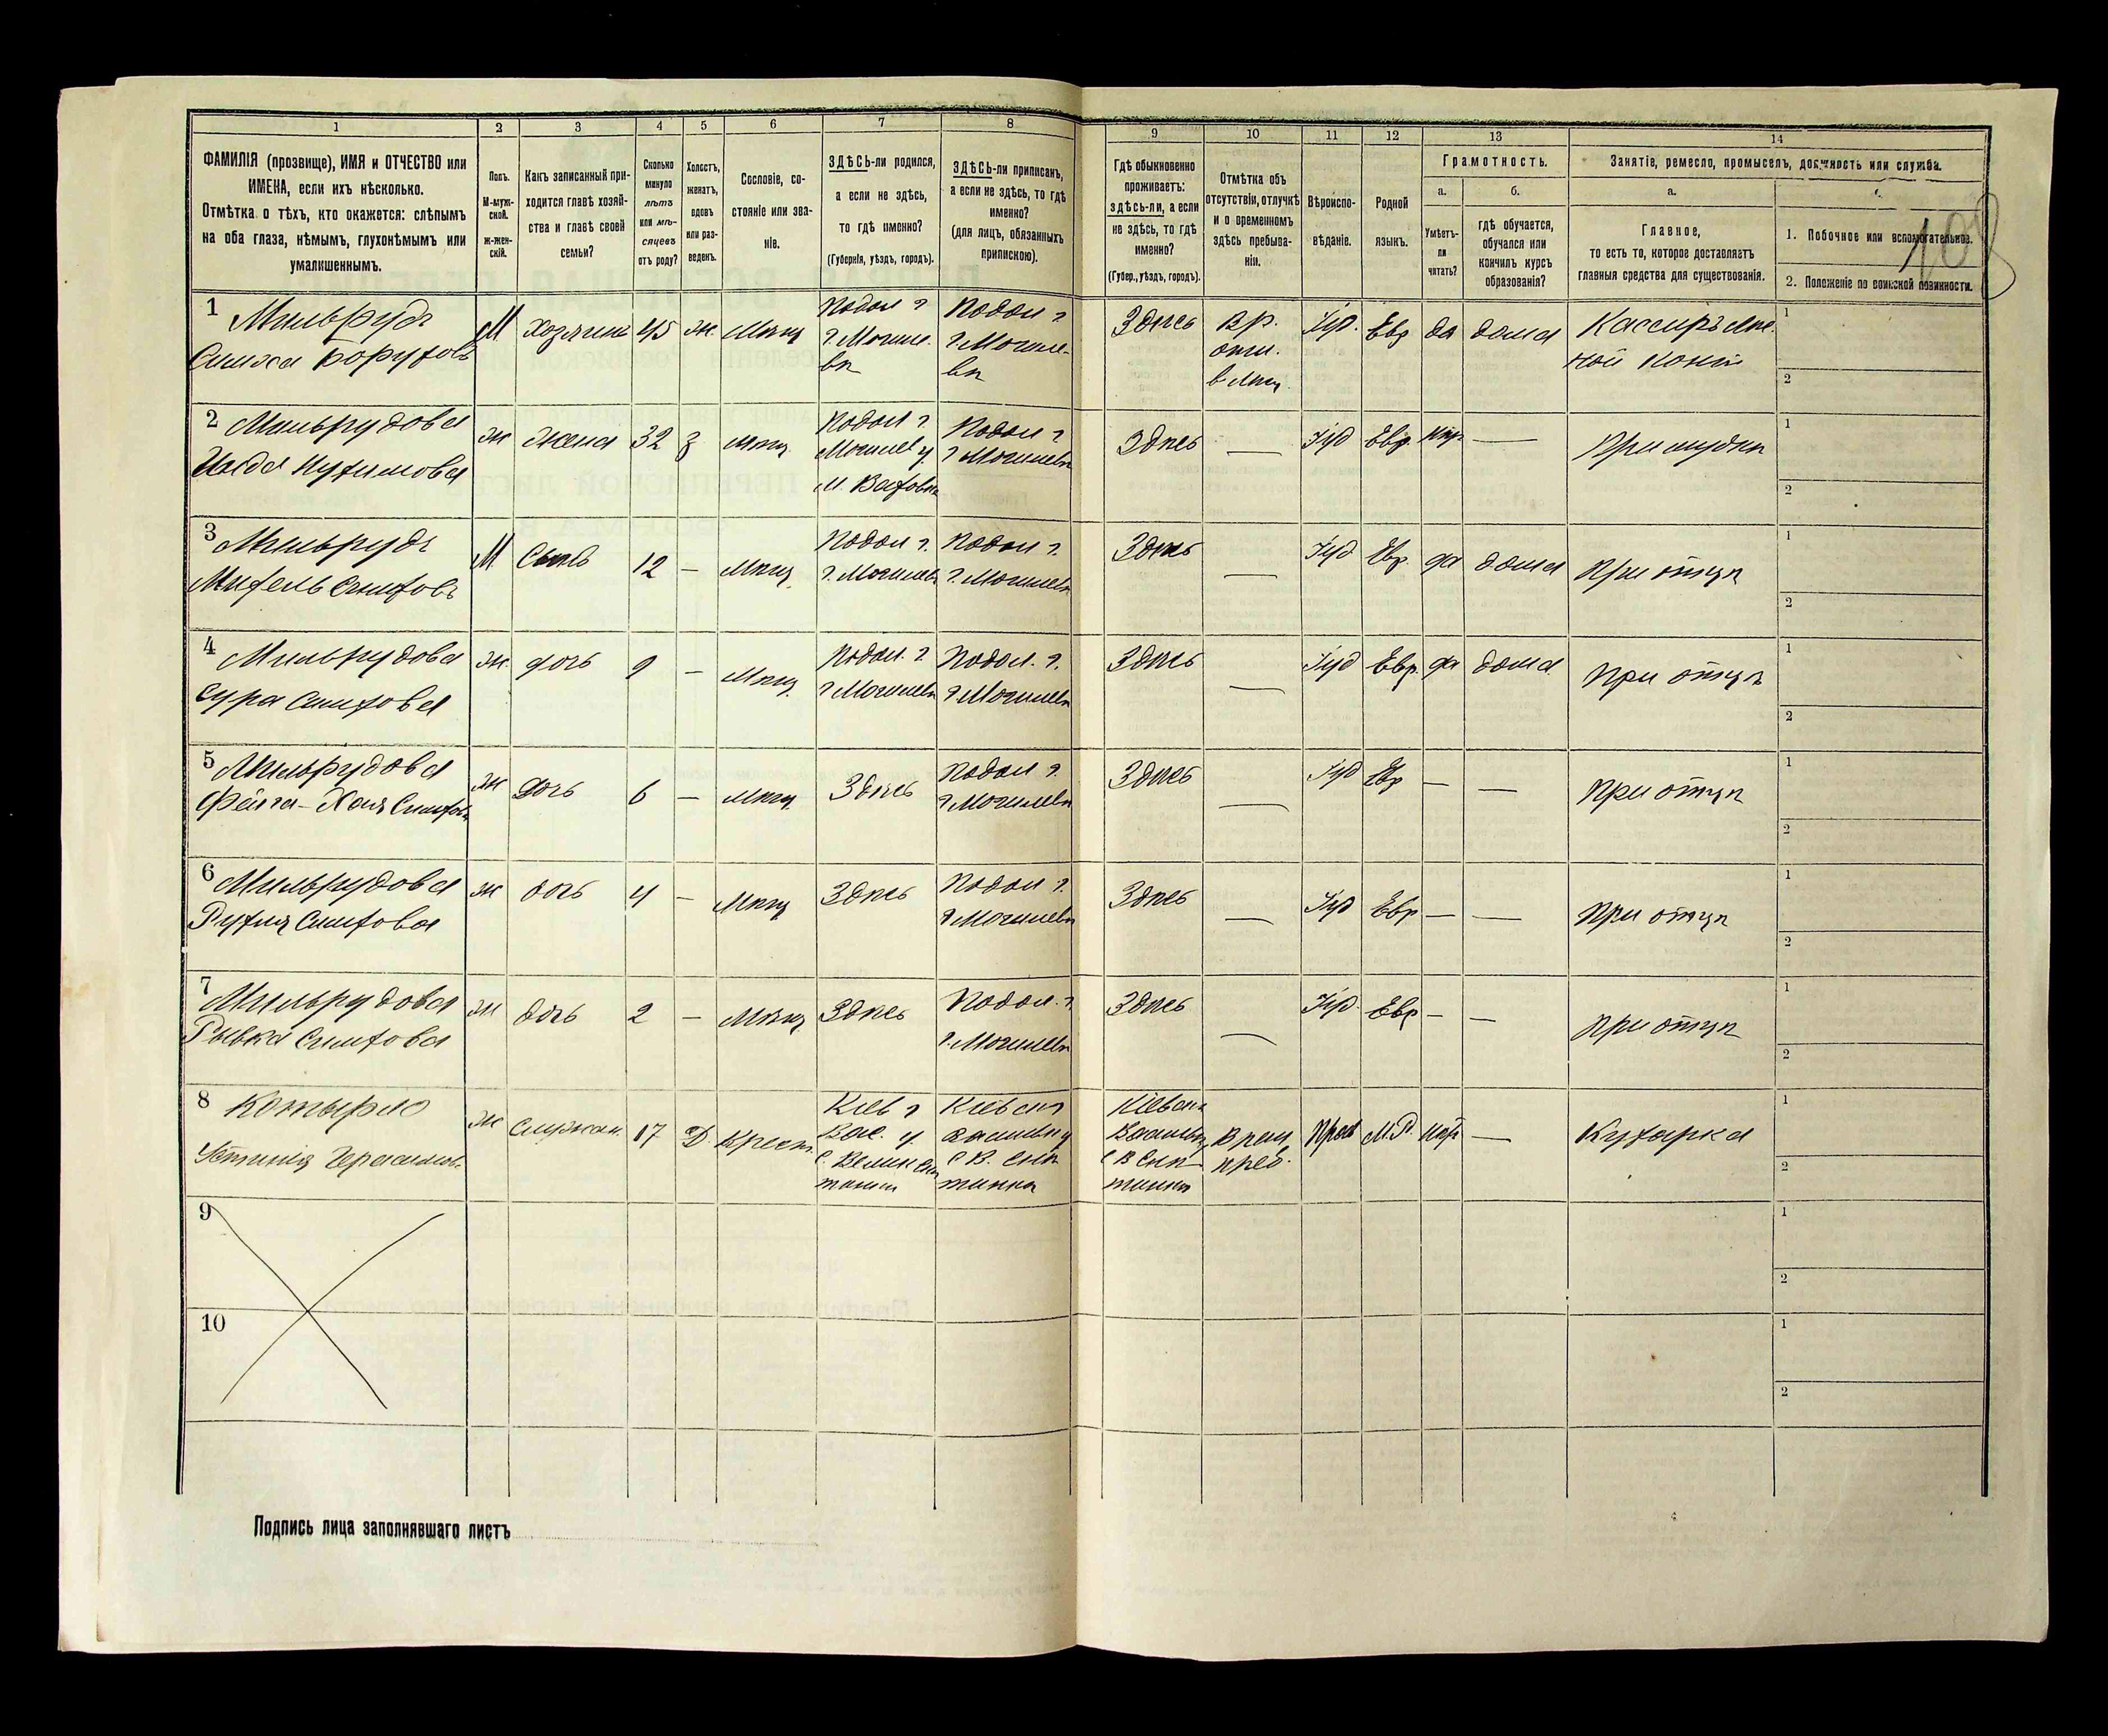 1 2 3 4 5 6 7 8 9 10 11 12 13 14
ФАМИЛІЯ (прозвище), ИМЯ и ОТЧЕСТВО или
ИМЕНА, если ихъ нѣсколько.
Отмѣтка о тѣхъ, кто окажется: слѣпымъ
на оба глаза, нѣмымъ, глухонѣмымъ или
умалишеннымъ.
Полъ.
М-муж-
ской.
ж-жен-
скій.
Какъ записанный при-
ходится главѣ хозяй-
ства и главѣ своей
семьи?
Сколько
минуло
лѣтъ
или мѣ-
сяцевъ
отъ роду?
Холостъ,
женатъ,
вдовъ
или раз-
веденъ.
Сословіе, со-
стояніе или зва-
ніе.
ЗДѢСЬ-ли родился,
а если не здѣсь,
то гдѣ именно?
(Губернія, уѣздъ, городъ).
ЗДѢСЬ-ли приписанъ,
а если не здѣсь, то гдѣ
именно?
(для лицъ, обязанныхъ
припискою).
Гдѣ обыкновенно
проживаетъ:
здѣсь-ли, а если
не здѣсь, то гдѣ
именно?
(Губер., уѣздъ, городъ).
Отмѣтка объ
отсутствіи, отлучкѣ
и о временномъ
здѣсь пребыва-
ніи.
Вѣроиспо-
вѣданіе.
Родной
языкъ.
Грамотность.
а.
Умѣетъ-
ли
читать?
б.
гдѣ обучается,
обучался или
кончилъ курсъ
образованія?
Занятіе, ремесло, промыселъ, должность или служба.
а.
Главное,
то есть то, которое доставляетъ
главныя средства для существованія.
1. Побочное или вспомогательное.
2. Положеніе по воинской повинности.
1 Мильрудъ
Симха Боруховъ
М
хозяинъ
45
ж.
Мѣщ
Подол г
г. Могиле-
вѣ
Подол г
г. Могиле-
вѣ
Здѣсь
Вр.
отл.
Іуд.
Евр
да
дома
Кассиръ
1
2
2 Мильрудова
ж
жена
32
з
мѣщ.
Подол г
Могилев у.
Подол г
г Могилевѣ
Здѣсь
—
Іуд
Евр.
—
При мужѣ
1
2
3 Мильрудъ
М
Сынъ
12
—
Мѣщ.
Подол г.
г. Могилевѣ
Подол г.
г. Могилевѣ
Здѣсь
—
Іуд
Евр.
да
дома
При отцѣ
1
2
4 Мильрудова
Сура Симхова
ж.
дочь
9
—
Мѣщ
Подол. г
г Могилевѣ
Подол. г.
г Могилевѣ
Здѣсь
—
Іуд
Евр.
да
дома.
При отцѣ
1
2
5 Мильрудова
Фейга-Хая Симхов
ж
дочь
6
—
Мѣщ.
Здѣсь
Подол г.
г Могилевѣ
Здѣсь
—
Іуд
Евр
—
—
При отцѣ
1
2
6 Мильрудова
Рухля Симхова
ж
дочь
4
—
Мѣщ
Здѣсь
Подол г.
г Могилевѣ
Здѣсь
—
Іуд
Евр
—
—
При отцѣ
1
2
7 Мильрудова
Рывка Симхова
ж
дочь
2
—
Мѣщ
Здѣсь
Подол. г.
г. Могилевѣ
Здѣсь
—
Іуд.
Евр
—
—
При отцѣ
1
2
8
Устинія Герасимов.
ж
Служан.
17
Д.
Крест.
Кіев г
Вас. у.
Кіевск
Кіевск
Врем
преб.
Прав
М.Р.
—
Кухарка
1
2
9
1
2
10
1
2
Подпись лица заполнявшаго листъ